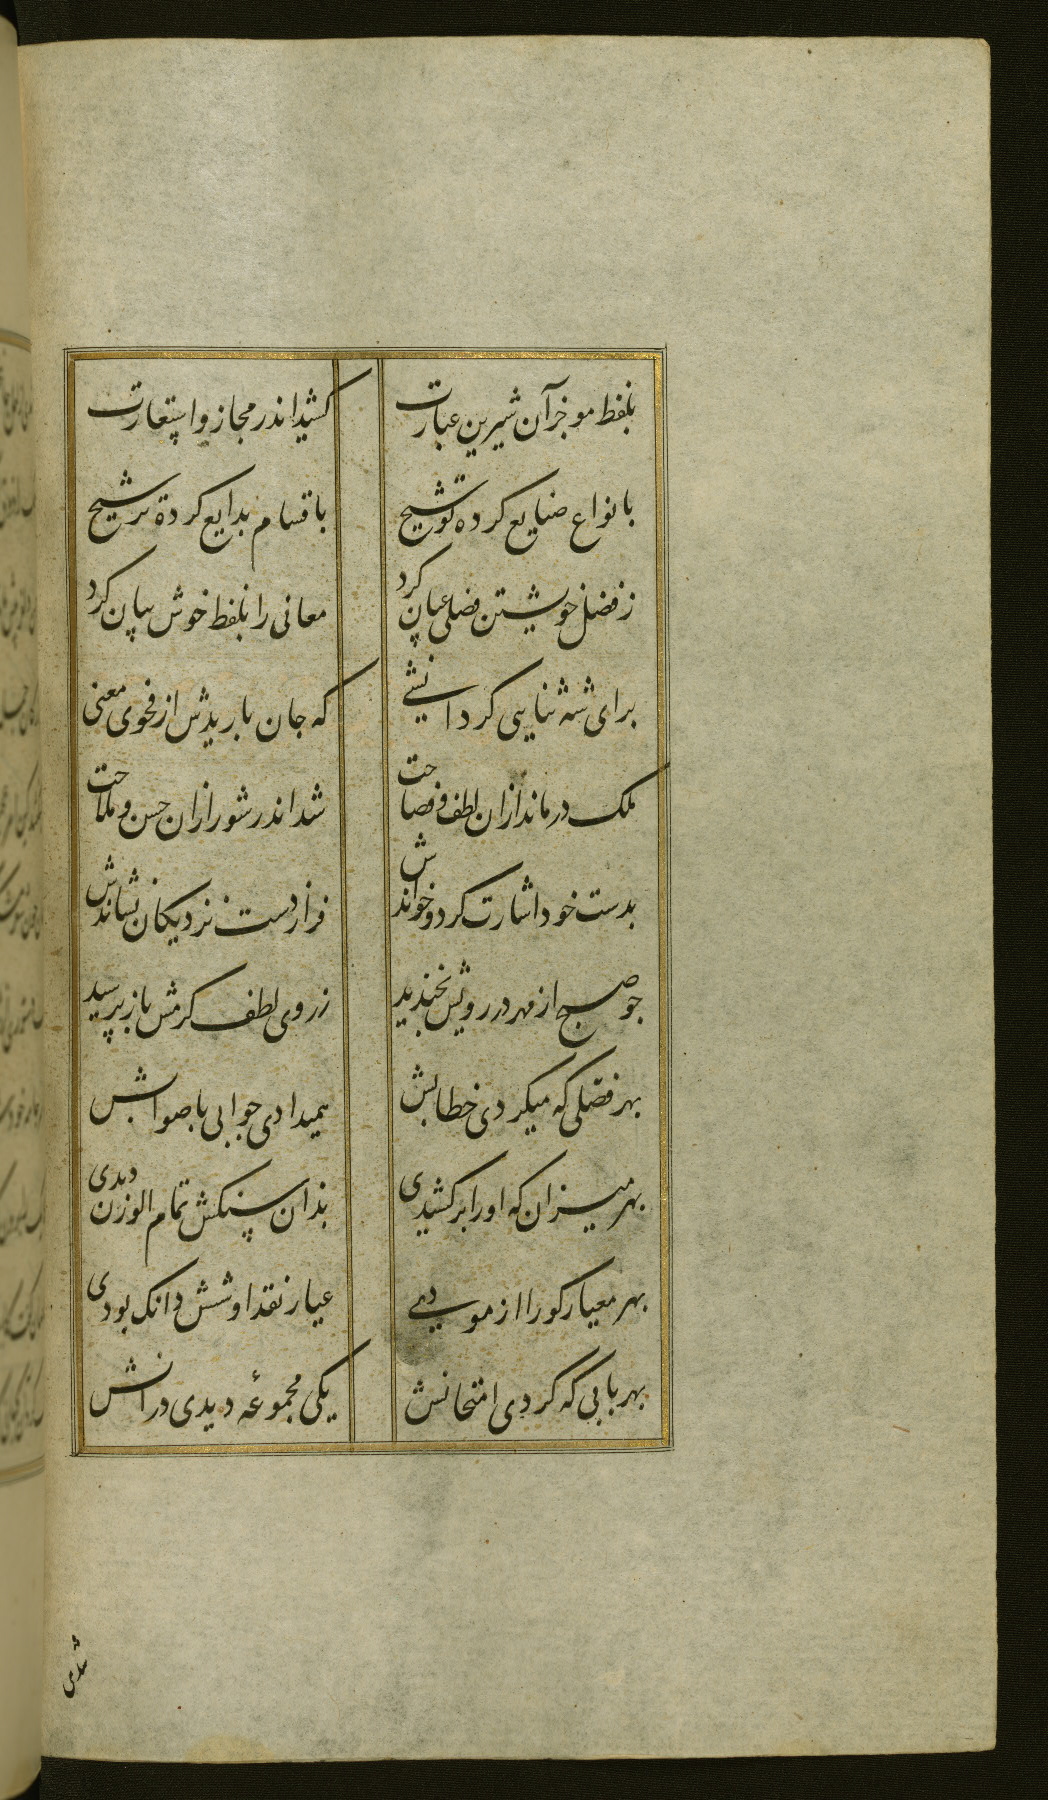 بلفظ موجز آن شیرین عبارت
کشید اندر مجاز و استعارت
بانواع صنایع کرده توشیح
باقسام بدایع کرده ترشیح
ز فضل خویشتن فضلی عیان کرد
معانی را بلفظ خوش بیان کرد
برای شه ثنایی کرد انشی
که جان باریدش از فحوی معنی
ملک درماند ازان لطف و فصاحت
شد اندر شور ازان حسن و ملاحت
بدست خود اشارت کرد و خواندش
فراز دست نزدیکان نشاندش
چو صبح از مهر در رویش بخندید
ز روی لطف کرمش باز پرسید
بهر فضلی که میکردی خطابش
همیدادی جوابی باصوابش
بهر میزان که او را برکشیدی
بذان سنکش تمام الوزن دیدی
بهر معیار کو را ازمودی
عیار نقد او شش دانک بودی
بهر بابی که کردی امتحانش
یکی مجموعه دیدی در انش
شدی